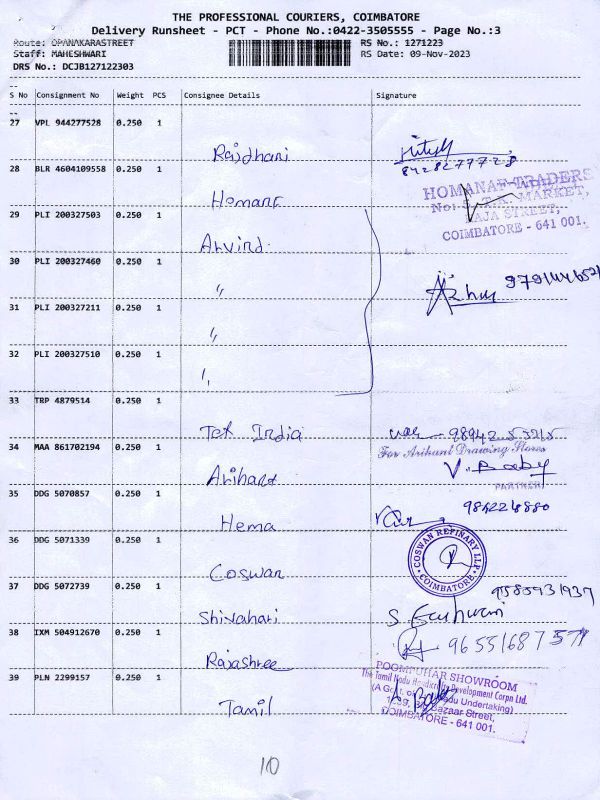 THE PROFESSIONAL COURIERS, COIMBATORE
Delivery Runsheet - PCT - Phone No.:0422-3505555 - Page No.:3
Route: OPANAKARASTREET
RS No.: 1271223
Staff: MAHESHWARI
RS Date: 09-Nov-2023
DRS No.: DCJB127122303
S No Consignment No Weight PCS Consignee Details Signature
27 VPL 944277528 0.250 1
Rajdhani
8428277728
28 BLR 4604109558 0.250 1
HOMANAF TRADERS
MARKET,
Hemant
RAJA STREET,
29 PLI 200327503 0.250 1
COIMBATORE - 641 001.
Arvind
30 PLI 200327460 0.250 1
"
31 PLI 200327211 0.250 1
"
32 PLI 200327510 0.250 1
"
33 TRP 4879514 0.250 1
Tek India
34 MAA 861702194 0.250 1
For Arihant Drawing Stores
V. Baby
Arihant
PARTNER
35 DDG 5070857 0.250 1
Hema
36 DDG 5071339 0.250 1
COSWAN REFINARY LLP.
COIMBATORE
Coswan
37 DDG 5072739 0.250 1
Shivahari
38 IXM 504912670 0.250 1
Rajashree
39 PLN 2299157 0.250 1
POOMPUHAR SHOWROOM
The Tamil Nadu Handicrafts Development Corpn Ltd.
(A Govt. of Tamil Nadu Undertaking)
Bazaar Street,
COIMBATORE - 641 001.
Tamil
10